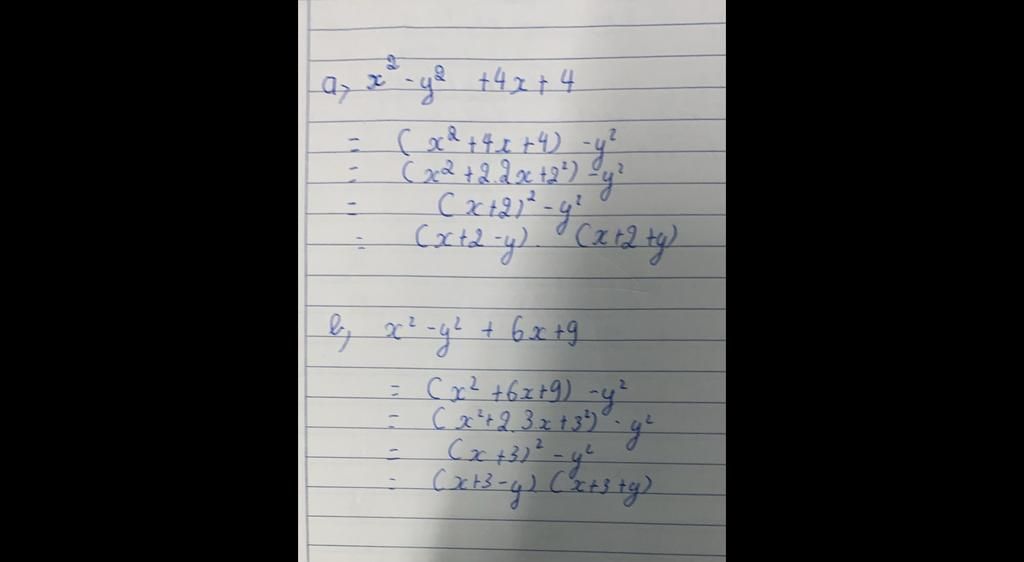 a, x² - y² + 4x + 4
= (x² + 4x + 4) - y²
= (x² + 2.2x + 2²) - y²
= (x + 2)² - y²
= (x + 2 - y). (x + 2 + y)
b, x² - y² + 6x + 9
= (x² + 6x + 9) - y²
= (x² + 2.3x + 3²) - y²
= (x + 3)² - y²
= (x + 3 - y) (x + 3 + y)